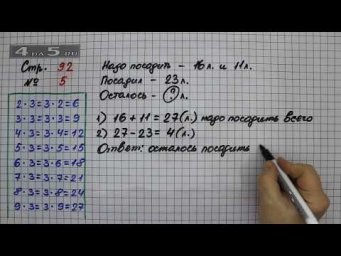 4 на 5.ru
Стр. 92
№ 5
2·3=3·2=6
3·3=3·3=9
4·3=3·4=12
5·3=3·5=15
6·3=3·6=18
7·3=3·7=21
8·3=3·8=24
9·3=3·9=27
Надо посадить – 16 л. и 11 л.
Посадил – 23 л.
Осталось – ? л.
1) 16 + 11 = 27 (л.) надо посадить всего
2) 27 – 23 = 4 (л.)
Ответ: осталось посадить